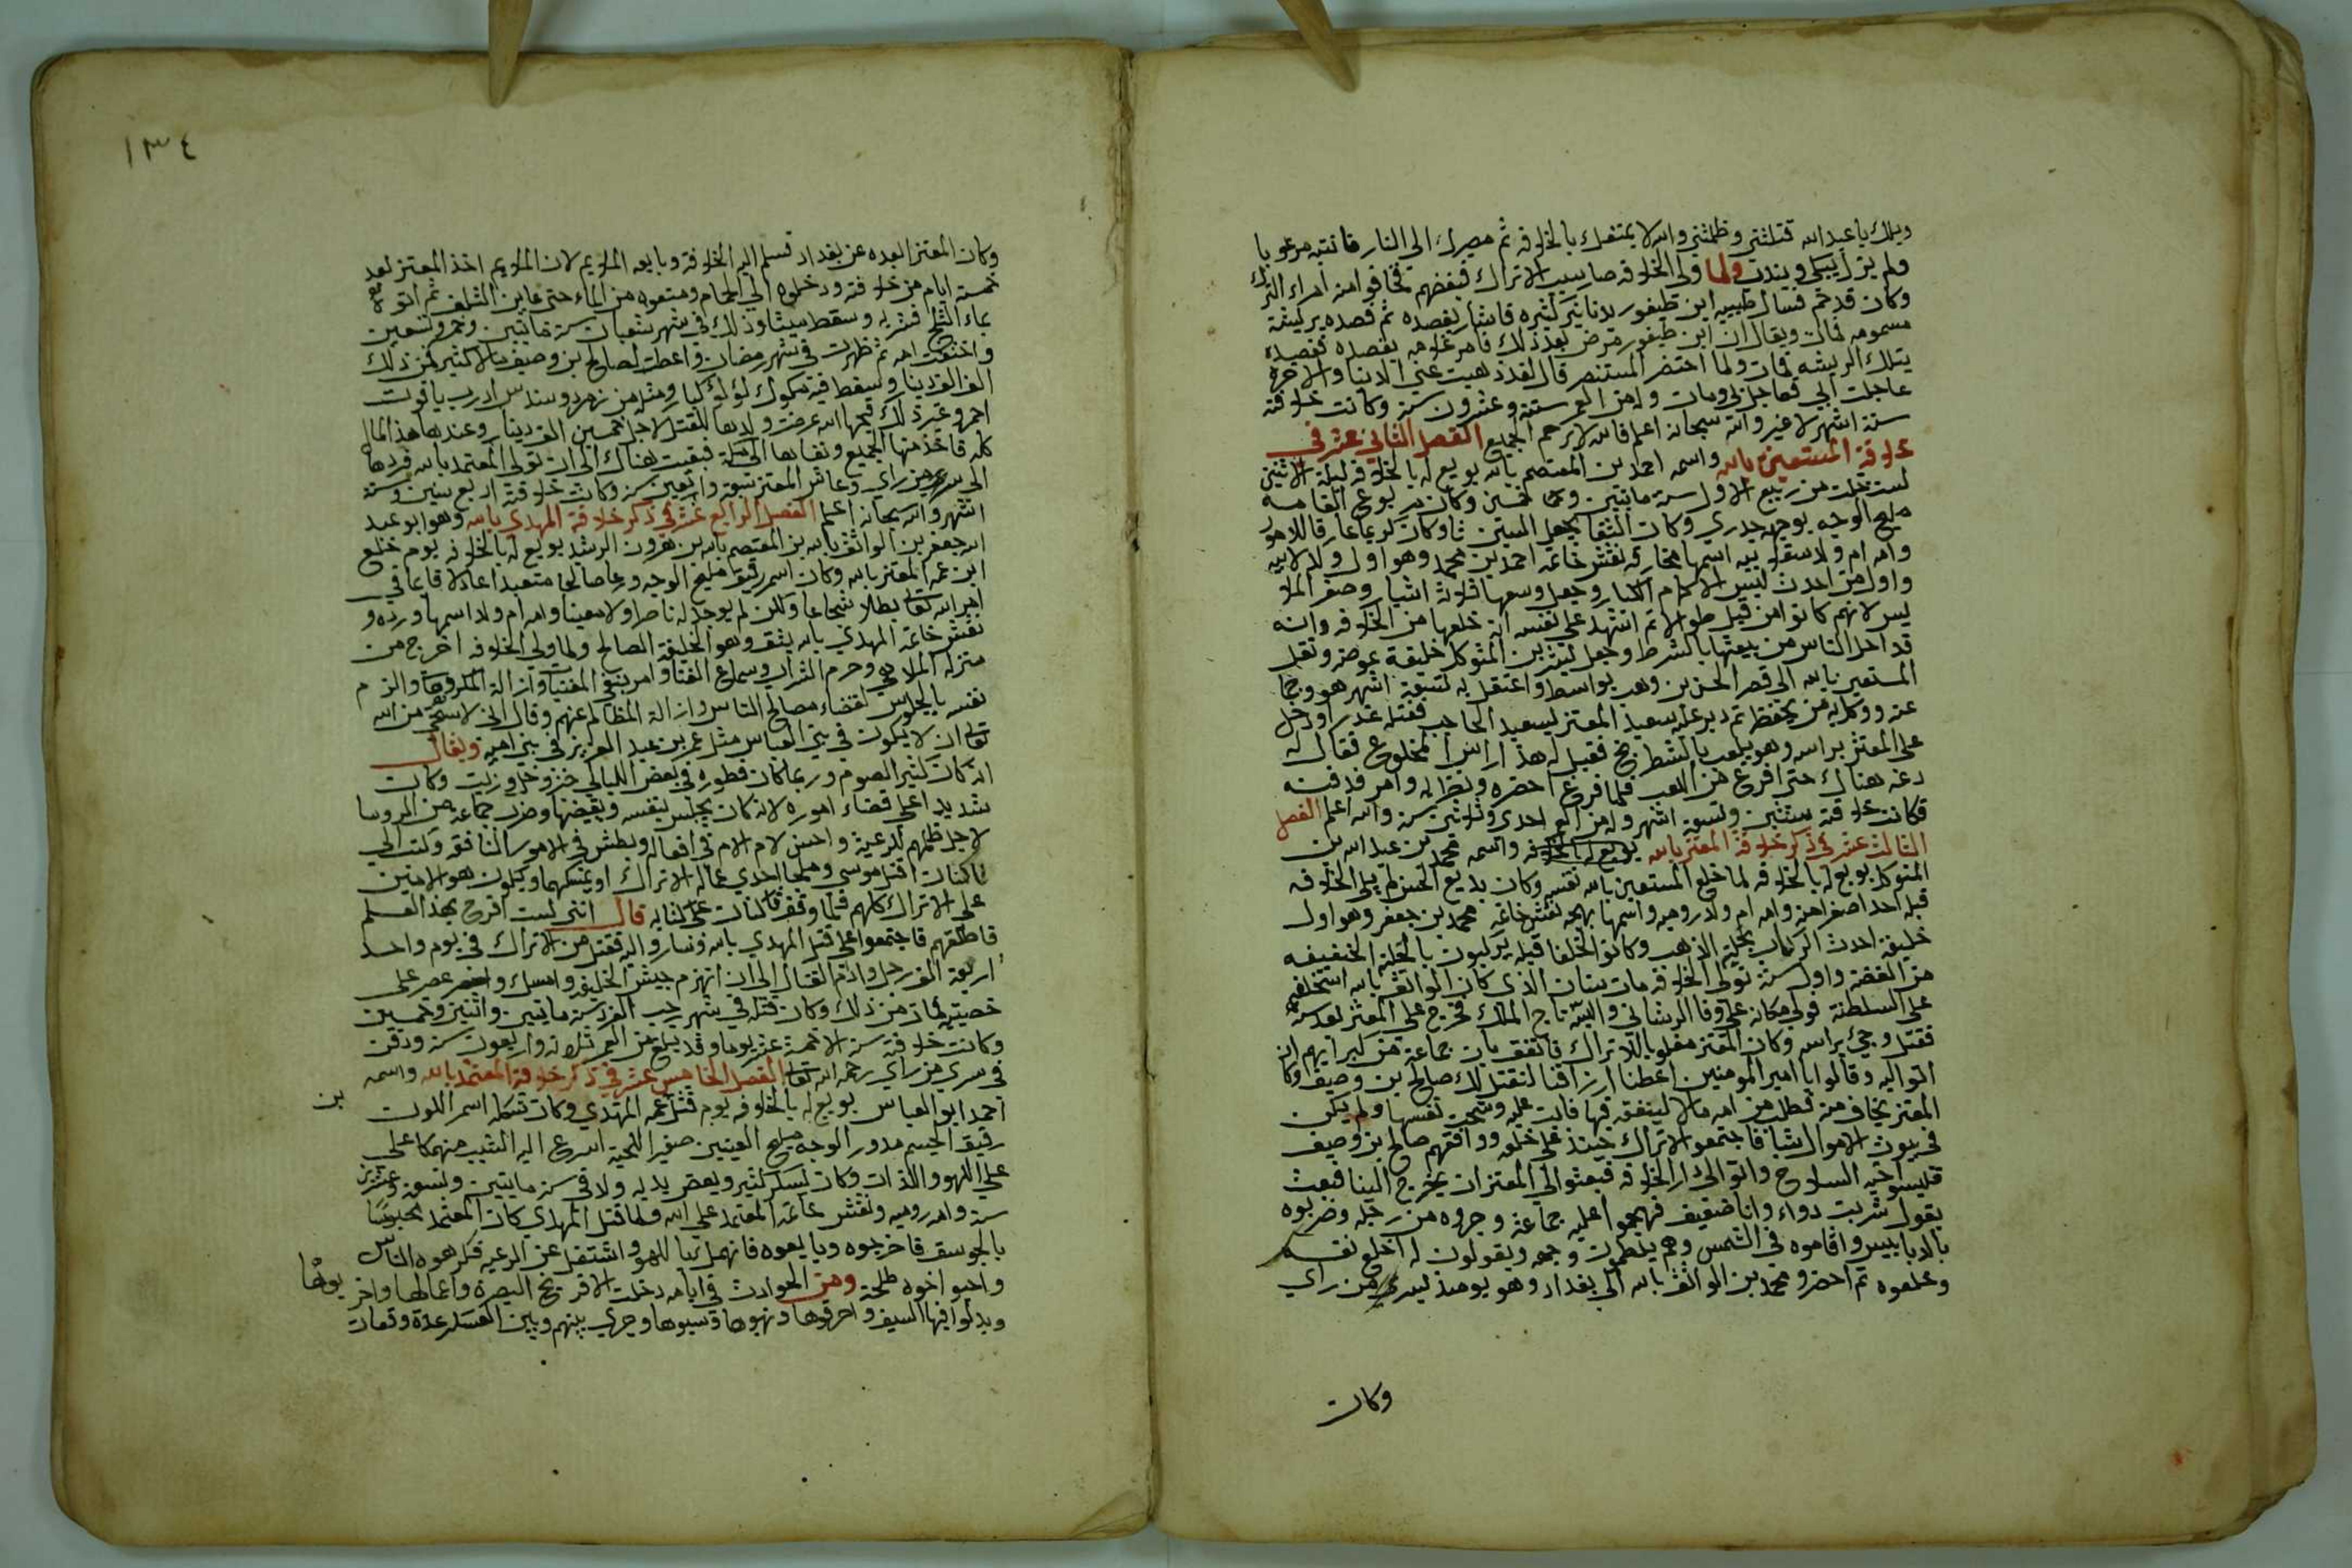 ويلك يا عبد الله قتلتني وظلمتني والله لا يمتعك بالخلافه ثم مصيرك الي النار فانتبه مرعوبا
ولم يزل يبكي ويندب ولما ولي الخلافه صار يسب الاتراك فبغضهم فخافوا منه امراء الترك
وكان قد حم فسال طبيبه ابن طيفور بدنانير كثيره فاشار بفصده ثم فصده بريشة
مسمومه فمات ويقال ان ابن طيفور مرض بعد ذلك فامر غلامه بفصده ففصده
بتلك الريشه فمات ولما احتضر المستنصر قال لقد ذهبت عني الدنيا والاخرة
عاجلت ابي فعاجلني ومات وله من العمر ستة وعشرون سنة وكانت خلافته
ستة اشهر لا غير والله سبحانه اعلم فالله لا يرحم الجميع الفصل الثاني عشر في
خلافة المستعين بالله واسمه احمد بن المعتصم بالله بويع له بالخلافه ليلة الاثنين
لست خلت من ربيع الاول سنة مايتين وثمان خمسين وكان مربوع القامه
مليح الوجه بوجهه جدري وكان الثغا يجعل السين ثا وكان كريما عارفا للامور
وامه ام ولد سقلبيه اسمها مخارق نقش خاتمه احمد بن محمد وهو اول ولد لابيه
واول من احدث لبس الاكمام الكبار وجعل وسعها ثلاثة اشبار وصغر الملا
بس لانهم كانوا من قبل طوالا ثم اشهد علي نفسه انه خلعها من الخلافه وانه
قد احل الناس من بيعتها بالشرط وجعل لبشر بن المتوكل خليفة عوضه ونقل
المستعين بالله الي قصر الحسن بن وهب بواسط واعتقل به تسعة اشهر هو وجما
عته ووكل به من يحفظ ثم دبر عليه سعيد المعتز لسعيد الحاجب فقتله غدرا ودخل
علي المعتز براسه وهو يلعب بالشطرنج فقيل له هذا راس المخلوع فقال له
دعه هناك حتي افرغ من اللعب فلما فرغ احضره ونظر اليه وامر بدفنه
فكانت خلافته سنتين وتسعة اشهر وله من العمر احدي وثلاثين سنة والله اعلم الفصل
الثالث عشر في ذكر خلافة المعتز بالله بويع له بالخلافه واسمه محمد بن عبد الله بن
المتوكل بويع له بالخلافه لما خلع المستعين بالله نفسه وكان بديع الحسن لم يلي الخلافه
قبله احد اصغر منه وامه ام ولد روميه واسمها بهجه نقش خاتمه محمد بن جعفر وهو اول
خليفة احدث الركاب بحلية الذهب وكانوا الخلفا قبله يركبون بالحلية الخفيفه
من الفضة واول سنة تولي الخلافه مات بنان الذي كان الواثق بالله استخلفه
علي السلطنة فولي مكانه علي وفا الرشاني والبسه تاج الملك فخرج علي المعتز بعد سنة
فقتل وجئ براسه وكان المعتز مغلوبا للاتراك فاتفق بان جماعة من كبرايهم ان
اتوا اليه وقالوا يا امير المومنين اعطنا ارزاقنا لنقتل لك صالح بن وصيف وكا
المعتز يخاف منه فطلب من امه مالا لينفقه فيهم فابت عليه وشحت نفسها ولم يكن
في بيوت الاموال شيا فاجتمعو الاتراك حينئذ علي خلعه ووافقهم صالح بن وصيف
فلبسوا حيه السلاح واتوا الي دار الخلافه فبعثوا الي المعتز ان يخرج الينا فبعث
يقول شربت دواء وانا ضعيف فهجموا عليه جماعة وجروه من رجله وضربوه
بالدبابيس واقاموه في الشمس وهم يلطمون وجهه ويقولون له اخلع نفسه
وخلعوه ثم احضرو محمد بن الواثق بالله الي بغداد وهو يومئذ بسري من راي
وكان
١٣٤
وكان المعتز ابعده عن بغداد فسلم اليه الخلافة وبايعه الملايم لان الملايم اخذ المعتز بعد
خمسة ايام من خلافته ودخلوه الي الحمام ومنعوه من الماء حتي عاين التلف ثم اتوه
بماء الثلج فشربه وسقط ميتا وذلك في شهر شعبان سنة مايتين وخمس وتسعين
واختفت امه ثم ظهرت في شهر رمضان واعطت لصالح بن وصيف مالا كثير فمن ذلك
الف الف دينار وسقط فيه مكوك لؤلؤ كبار ومثله من زمرد وسدس اردب ياقوت
احمر وغير ذلك قيمها انه عرضت ولدها للقتل لاجل خمسين الف دينار وعندها هذا المال
كله فاخذ منها الجميع ونفاها الي مكة فبقيت هناك الي ان تولي المعتمد بالله فردها
الي سر من راي وعاش المعتز سبعة واربعين سنة وكانت خلافته اربع سنين وستة
اشهر والله سبحانه اعلم الفصل الرابع عشر في ذكر خلافة المهدي بالله وهو ابو عبد
الله جعفر بن الواثق بالله بن المعتصم بالله بن هرون الرشيد بويع له بالخلافه يوم خلع
ابن عمه المعتز بالله وكان اسمر رقيقا مليح الوجه ورعا صالحا متعبدا عادلا قايما في
امر الله تعالي بطلا شجاعا ولكن لم يوجد له ناصرا ولا معينا وامه ام ولد اسمها ورده و
نقش خاتمه المهدي بالله يثق وهو الخليفة الصالح ولما ولي الخلافه اخرج من
منزله الملاهي وحرم الشراب وسماع الغنا وامر بنفي المغنيات وازالة المكروهات والزم
نفسه بالجلوس لقضاء مصالح الناس وازالة المظالم عنهم وقال اني لاستحي من الله
تعالي ان لا يكون في بني العباس مثل عمر بن عبد العزيز في بني اميه ويقال
انه كان كثير الصوم وربما كان فطوره في بعض الليالي خبز وخل وزيت وكان
شديدا علي قضاء اموره لانه كان يجلس بنفسه ويقيضها وضرب جماعة من الروسا
لاجل ظلمهم للرعية واحسن لامالام في افعاله وبطش في الامور النافعه وكتب الي
باكنات اقتل موسي ومفلحا احدي عمال الاتراك او يمسكهما ويكون هو الامين
علي الاتراك كلهم فلما وقف باكنات علي كتابه قال انني لست افرح بهذا القسم
فاطلعهم فاجتمعوا علي قتل المهدي بالله وساروا اليه فقتل من الاتراك في يوم واحد
اربعة الاف رجل ودام القتال الي ان انهزم جيش الخليفه وامسك وعصر علي
خصيتيه فمات من ذلك وكان قتله في شهر رجب الفرد سنة مايتين واثنين وخمسين
وكانت خلافته سنة الا خمسة عشر يوما وقد بلغ من العمر ثلاثه واربعون سنة ودفن
في سري من راي رحمه الله تعالي الفصل الخامس عشر في ذكر خلافة المعتمد بالله واسمه
احمد ابو العباس بويع له بالخلافه يوم قتل عمه المهتدي وكان شكله اسمر اللون بن
رقيق الجسم مدور الوجه مليح العينين صغير اللحية اسرع اليه الشيب منهمكا علي
علي اللهو واللذات وكان يسكر كثير ويعض يديه ولد في سنة مايتين وتسعة وعشرين
سنة وامه روميه ونقش خاتمه المعتمد علي الله ولما قتل المهدي كان المعتمد محبوسا
بالجوسق فاخرجوه وبايعوه فانهمك بالهو واشتغل عن الرعيه فكرهوه الناس
واحبوا اخوه طلحة ومن الحوادث في ايامه دخلت الافرنج البصرة واعمالها واخربوها
وبدلوا فيها السيف واحرقوها ونهبوها وسبوها وجري بينهم وبين العسكر عدة وقعات